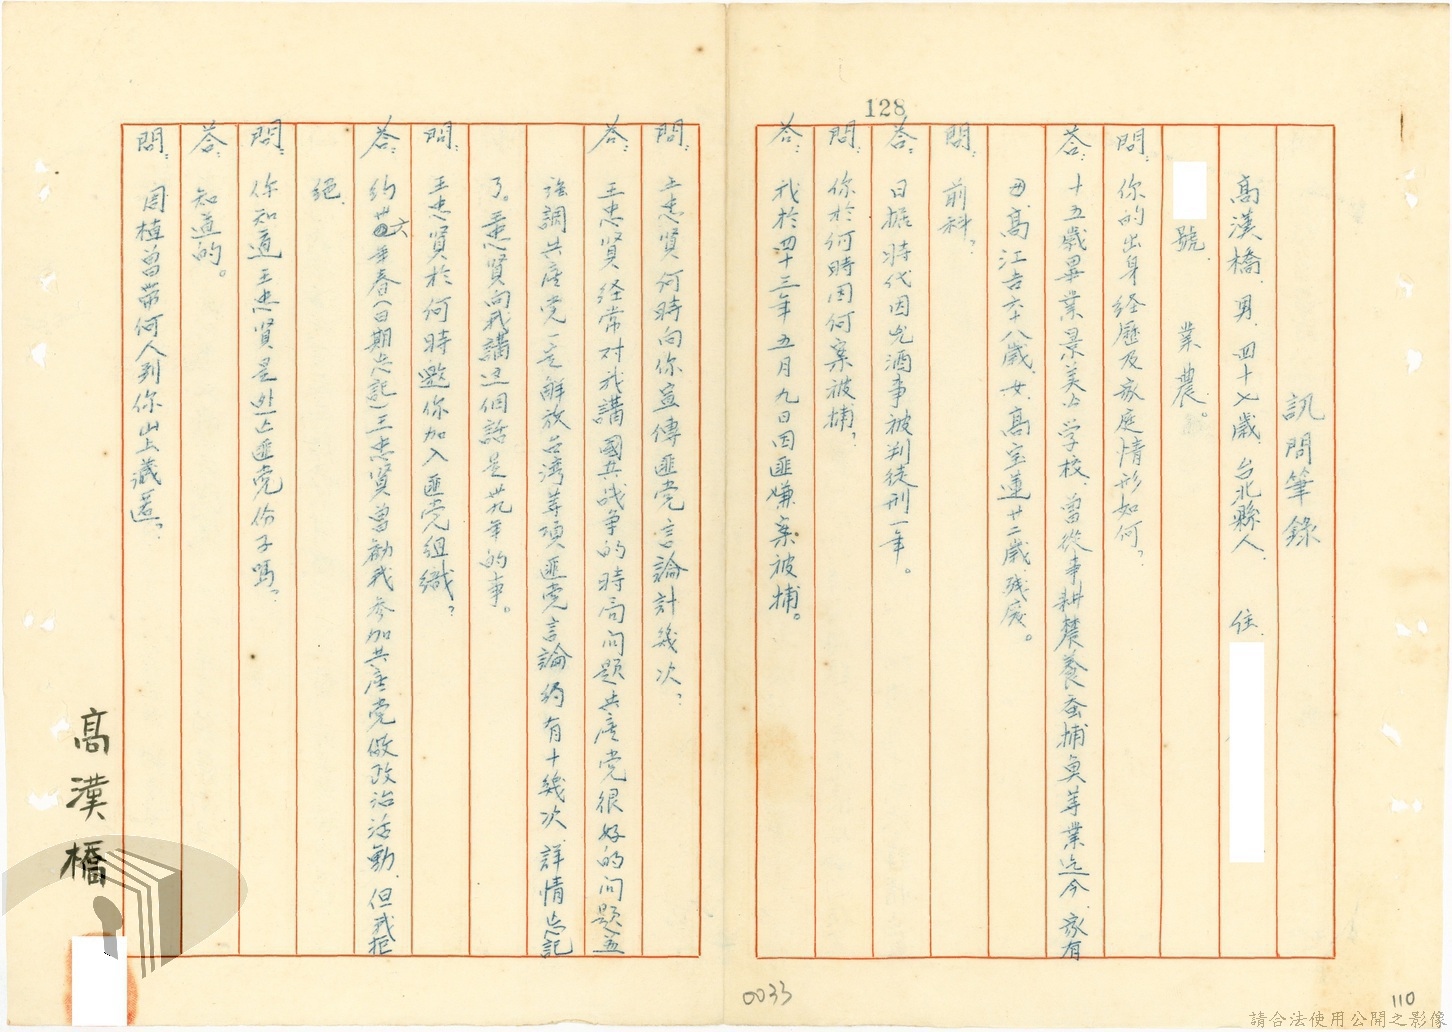 128
訊問筆錄
高漢橋 男、四十七歲、台北縣人、住
號 業農。
問: 你的出身経歷及家庭情形如何?
答: 十五歲畢業景美公学校、曾從事耕農養蚕捕魚等業迄今、家有
母高江吉六十八歲、女、高宝蓮廿二歲、残废。
問: 前科?
答: 日據時代因私酒事被判徒刑一年。
問: 你於何時因何案被捕?
答: 我於四十三年五月九日因匪嫌案被捕。
問: 王忠賢何時向你宣傳匪党言論計幾次?
答: 王忠賢経常对我講國共战争的時局问题共産党很好的问题並
強調共産党一定解放台湾等項匪党言論約有十幾次、詳情忘記
了。王忠賢向我講这個話是卅九年的事。
問: 王忠賢於何時邀你加入匪党组織?
答: 約卅六年春(日期忘記)王忠賢曾勧我参加共産党做政治活動、但我拒
絕.
問: 你知道王忠賢是逃亡匪党份子嗎?
答: 知道的。
問: 周植曾帶何人到你山上藏匿?
高漢橋
0033
110
請合法使用公開之影像